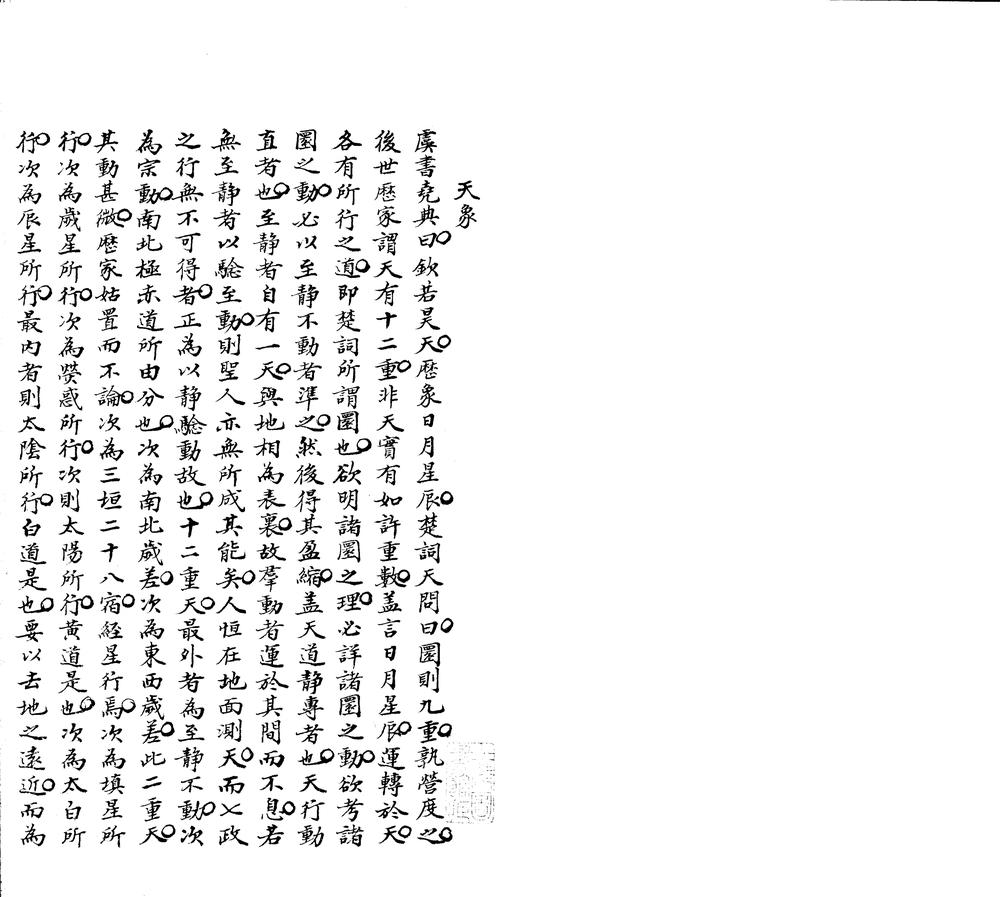 天象
虞書堯典曰欽若昊天歷象日月星辰楚詞天問曰圜則九重孰營度之
後世歷家謂天有十二重非天實有如許重數蓋言日月星辰運轉於天
各有所行之道即楚詞所謂圜也欲明諸圜之理必詳諸圜之動欲考諸
圜之動必以至静不動者準之然後得其盈縮盖天道静專者也天行動
直者也至静者自有一天與地相為表裏故羣動者運於其間而不息若
無至静者以騐至動則聖人亦無所成其能矣人恒在地面測天而七政
之行無不可得者正為以静騐動故也十二重天最外者為至静不動次
為宗動南北極赤道所由分也次為南北歲差次為東西歲差此二重天
其動甚微歷家姑置而不論次為三垣二十八宿經星行焉次為填星所
行次為歲星所行次為熒惑所行次則太陽所行黄道是也次為太白所
行次為辰星所行最内者則太陰所行白道是也要以去地之遠近而為